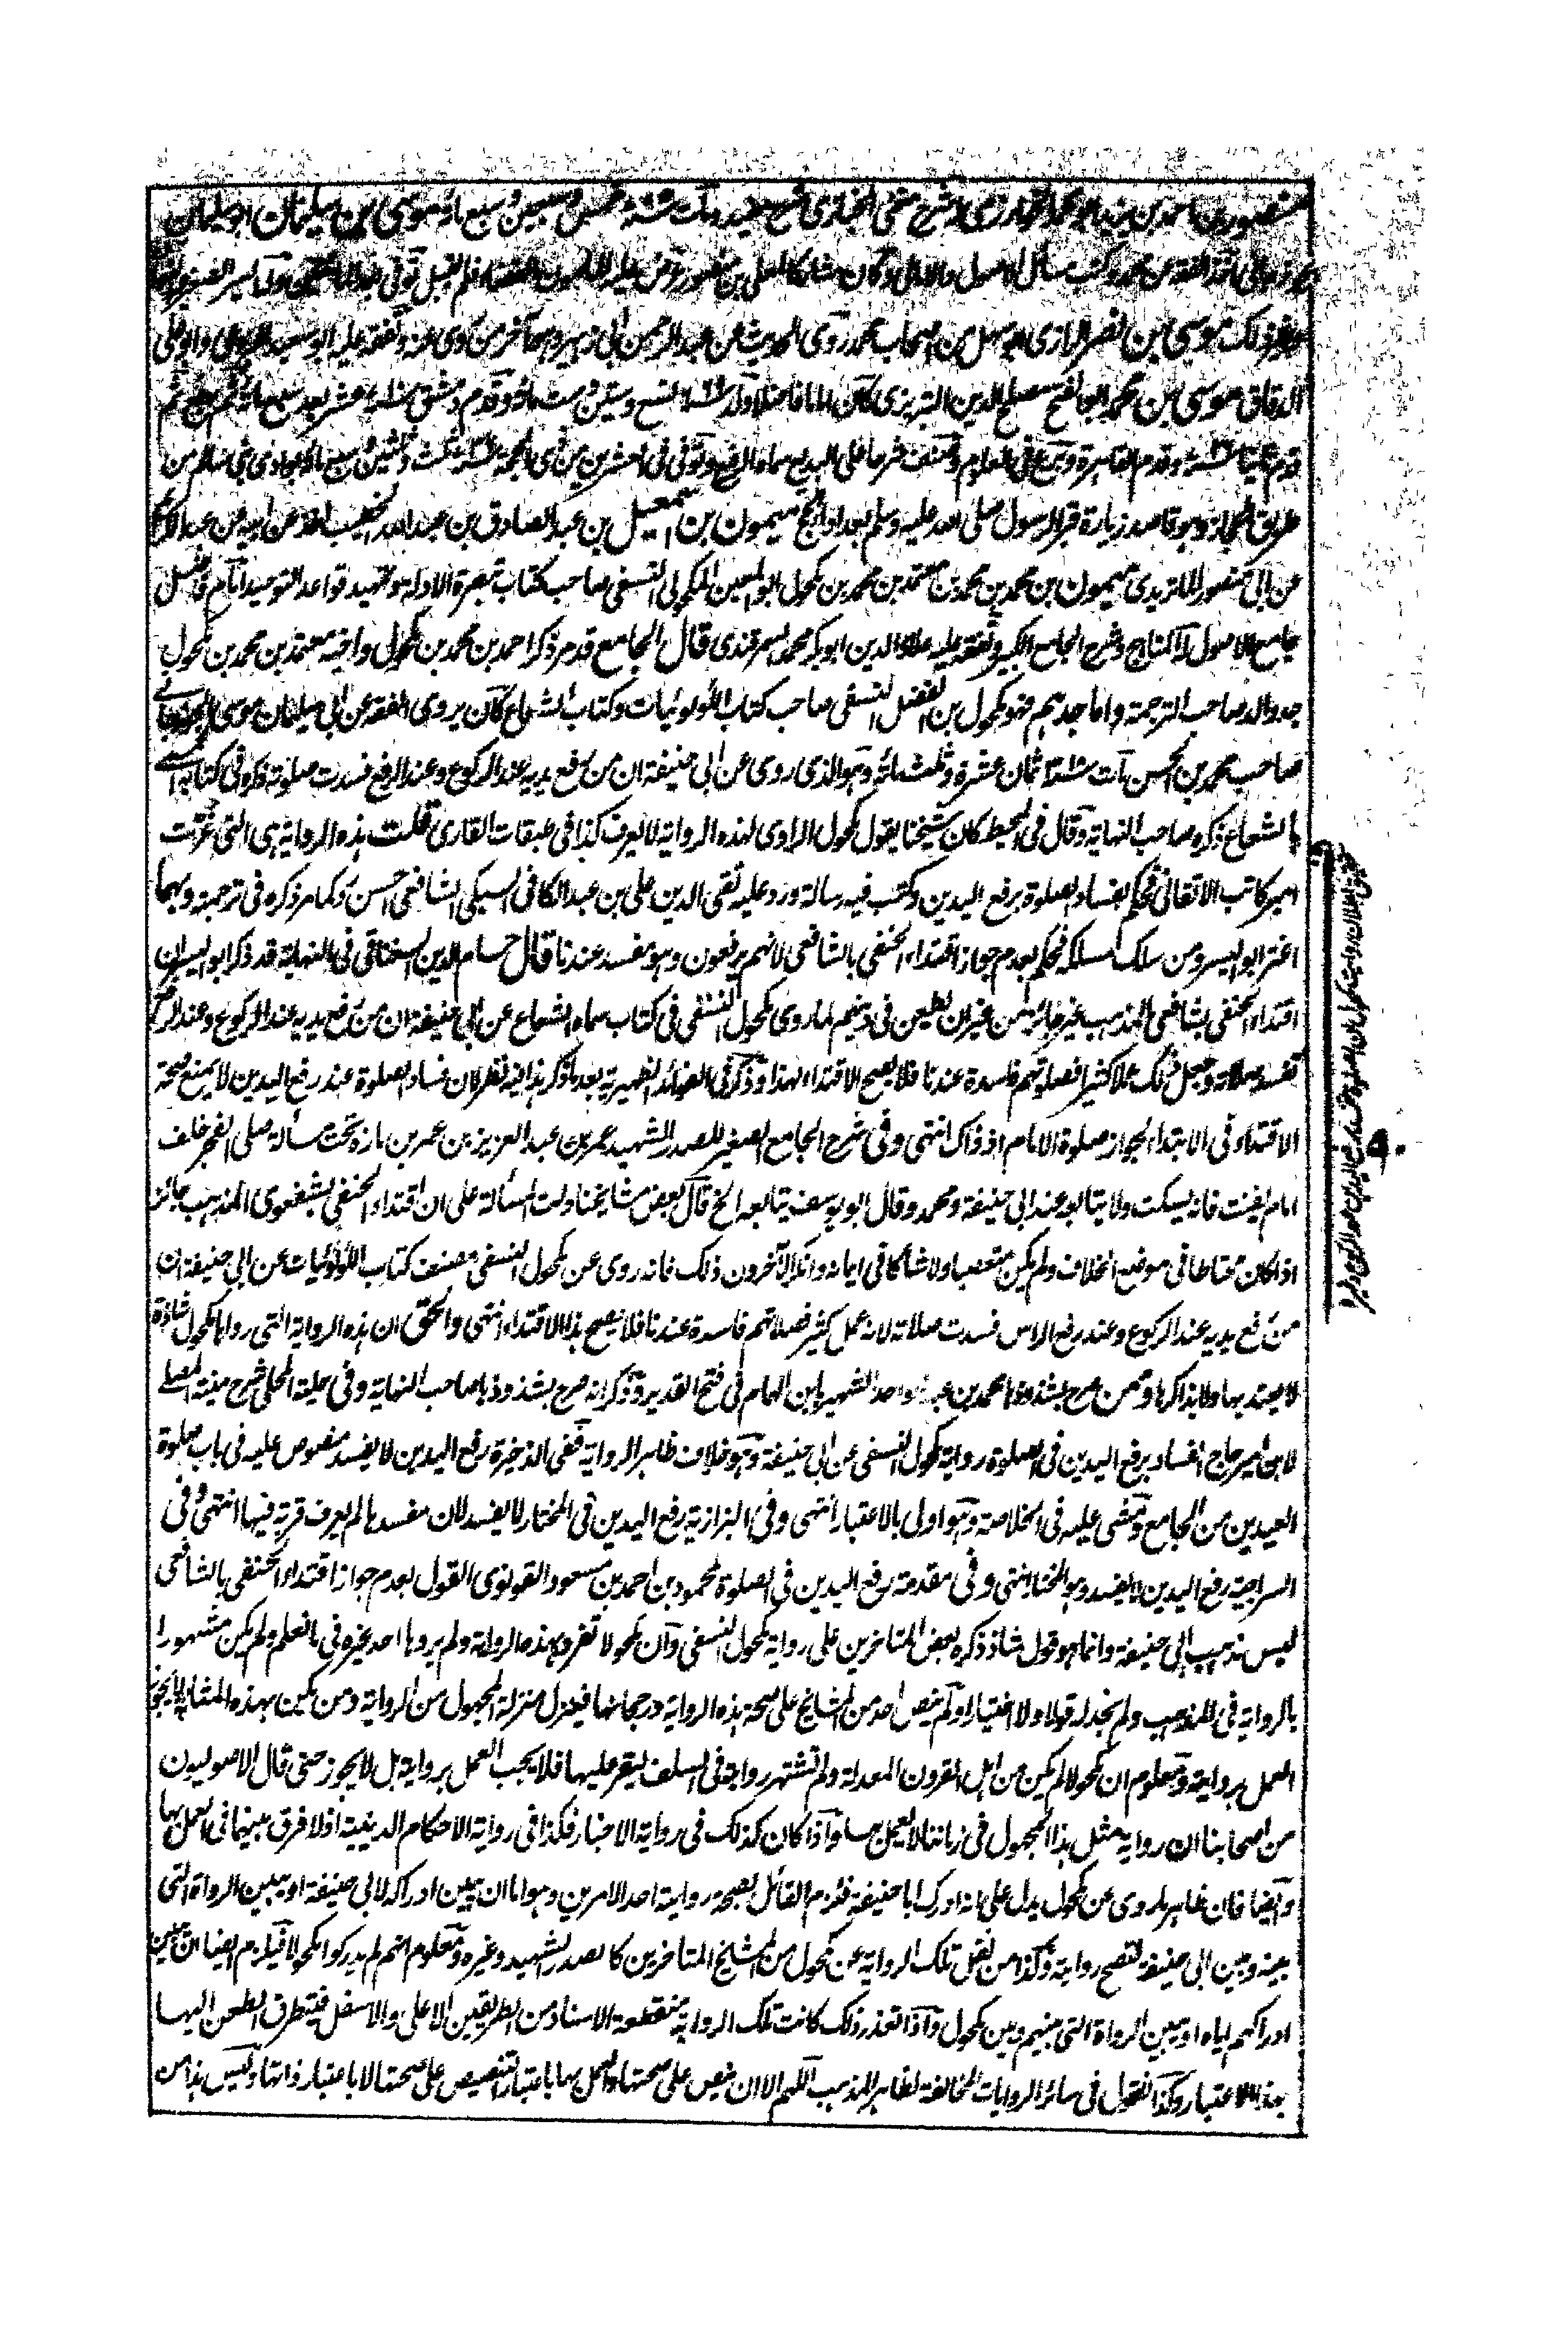 منصور بن احمد بن يزيد ابو محمد الخوارزمي له شرح مغني الخبازي شرح مفيد مات سنة خمس وسبعين وسبع مائة موسى بن سليمان ابو سليمان
الجوزجاني اخذ الفقه عن محمد وكتب مسائل الاصول والامالي وكان مشاركا لمعلى بن منصور وعرض عليه المامون القضاء فلم يقبل توفي بعد المائتين وله السير الصغير
وغير ذلك موسى بن نصر الرازي ابو سهل من اصحاب محمد روى الحديث عن عبد الرحمن ابي زهير وهو آخر من روى عنه وتفقه عليه ابو سعيد البردعي وابو علي
الدقاق موسى بن محمد ابو الفتح مصلح الدين التبريزي كان اماما فاضلا ولد سنة ٦٦٩ تسع وستين وست مائة وقدم دمشق سنة عشر بعد سبع مائة ثم حج ثم
قدم ثانيا سنة وقدم القاهرة وبرع في العلوم وصنف شرحا على البديع سماه الرفيع وتوفي في العشرين من ذي الحجة سنة ثلث وثلثين وسبع مائة بوادي بني سالم من
طريق الحجاز وهو قاصد زيارة قبر الرسول صلى الله عليه وسلم بعد اداء الحج ميمون بن اسمعيل بن عبد الصادق بن عبد الله الخطيب اخذ عن ابيه عن عبد الكريم
عن ابي منصور الماتريدي ميمون بن محمد بن محمد بن معتمد بن محمد بن مكحول ابو المعين المكحولي النسفي صاحب كتاب تبصرة الادلة وتمهيد قواعد التوحيد امام فاضل
جامع الاصول له المناهج وشرح الجامع الكبير وتفقه عليه علاء الدين ابو بكر محمد السمرقندي قال الجامع قد مر ذكر احمد بن محمد بن مكحول واخيه معتمد بن محمد بن مكحول
جد والد صاحب الترجمة واما جدهم فهو مكحول بن الفضل النسفي صاحب كتاب اللؤلوئيات وكتاب الشعاع كان يروى الفقه عن ابي سليمان موسى الجوزجاني
صاحب محمد بن الحسن مات سنة ٣١٨ ثمان عشرة وثلث مائة وهو الذي روى عن ابي حنيفة ان من رفع يديه عند الركوع وعند الرفع فسدت صلوته ذكره في كتابه المسمى
بالشعاع ذكره صاحب النهاية وقال في المحيط كان شيخنا يقول مكحول الراوي لهذه الرواية لا يعرف كذا في طبقات القاري قلت هذه الرواية هي التي غرت
امير كاتب الاتقاني فحكم بفساد الصلوة برفع اليدين وكتب فيه رسالة ورد عليه تقي الدين علي بن عبد الكافي السبكي الشافعي احسن رد كما مر ذكره في ترجمته وبهما
اغتر ابو اليسر ومن سلك مسلكه فحكم بعدم جواز اقتداء الحنفي بالشافعي لانهم يرفعون وهو مفسد عندنا قال حسام الدين السغناقي في النهاية قد ذكر ابو اليسر ان
اقتداء الحنفي بشافعي المذهب غير جائز من غير ان يطعن في دينهم لما روى مكحول النسفي في كتاب سماه الشعاع عن ابي حنيفة ان من رفع يديه عند الركوع وعند الرفع
تفسد صلاته وجعل ذلك عملا كثيرا فصلوتهم فاسدة عندنا فلا يصح الاقتداء بهذا وذكر في الفوائد الظهيرية بعد ما ذكر هذا فيه نظر لان فساد الصلوة عند رفع اليدين لا يمنع صحة
الاقتداء في الابتداء لجواز صلوة الامام اذ ذاك انتهى وفي شرح الجامع الصغير للصدر الشهيد عمر بن عبد العزيز بن عمر بن مازه تحت مسألة صلى الفجر خلف
امام يقنت فانه يسكت ولا يتابعه عند ابي حنيفة ومحمد وقال ابو يوسف يتابعه الخ قال بعض مشايخنا دلت المسألة على ان اقتداء الحنفي بشفعوي المذهب جائز
اذا كان محتاطا في موضع الخلاف ولم يكن متعصبا ولا شاكا في ايمانه وانكر الآخرون ذلك فانه روى عن مكحول النسفي مصنف كتاب اللؤلؤئيات عن ابي حنيفة ان
من رفع يديه عند الركوع وعند رفع الراس فسدت صلاته لانه عمل كثير فصلاتهم فاسدة عندنا فلا يصح هذا الاقتداء انتهى والحق ان هذه الرواية التي رواها مكحول شاذة
لا يعتد بها ولا بذاكرها وممن صرح بشذوذها محمد بن عبد الواحد الشهير بابن الهمام في فتح القدير وذكر انه صرح بشذوذها صاحب النهاية وفي حلية المحلي شرح منية المصلي
لابن امير حاج الفساد برفع اليدين في الصلوة رواية مكحول النسفي عن ابي حنيفة وهو خلاف ظاهر الرواية ففي الذخيرة رفع اليدين لا يفسد منصوص عليه في باب صلوة
العيدين من الجامع ومشى عليه في الخلاصة وهو اولى بالاعتبار انتهى وفي البزازية رفع اليدين في المختار لا يفسد لان مفسدها لم يعرف قربة فيها انتهى وفي
السراجية رفع اليدين لا يفسد وهو المختار انتهى وفي مقدمة رفع اليدين في الصلوة لمحمود بن احمد بن مسعود القونوي القول بعدم جواز اقتداء الحنفي بالشافعي
ليس مذهب ابي حنيفة وانما هو قول شاذ ذكره بعض المتاخرين على رواية مكحول النسفي وان مكحولا تفرد بهذه الرواية ولم يروها احد غيره في ما نعلم ولم يكن مشهورا
بالرواية في المذهب ولم نجد له قولا ولا اختيارا ولم ينص احد من المشايخ على صحة هذه الرواية ورجحانها فينزل منزلة المجهول من الرواية ومن يكن بهذه المثابة لا يجوز
العمل بروايته ومعلوم ان مكحولا لم يكن من اهل القرون المعدلة ولم تشتهر روايته في السلف ليقر عليها فلا يجب العمل بروايته بل لا يجوز حتى قال الاصوليون
من اصحابنا ان رواية مثل هذا المجهول في زماننا لا يعمل بها واذا كان كذلك في رواية الاخبار فكذا في رواية الاحكام الدينية اذ لا فرق بينهما في العمل بها
وايضا فان ظاهر ما روى عن مكحول يدل على انه ادرك ابا حنيفة فلزم القائل بصحة روايته احد الامرين وهو اما ان يبين ادراكه لابي حنيفة او يبين الرواة التي
بينه وبين ابي حنيفة لتصح روايته وكذا من نقل تلك الرواية عن مكحول من المشايخ المتاخرين كالصدر الشهيد وغيره ومعلوم انهم لم يدركوا مكحولا فيلزم ايضا ان يبين
ادراكهم اياه او يبين الرواة التي بينهم وبين مكحول واذا تعذر ذلك كانت تلك الرواية منقطعة الاسناد من الطريقين الاعلى والاسفل فيتطرق الطعن اليها
بهذا الاعتبار وكذا نقول في سائر الروايات المخالفة لظاهر المذهب اللهم الا ان ينص على صحتها والعمل بها باعتبار التنصيص على صحتها لا باعتبار ذاتها وليس هذا من
٩٠